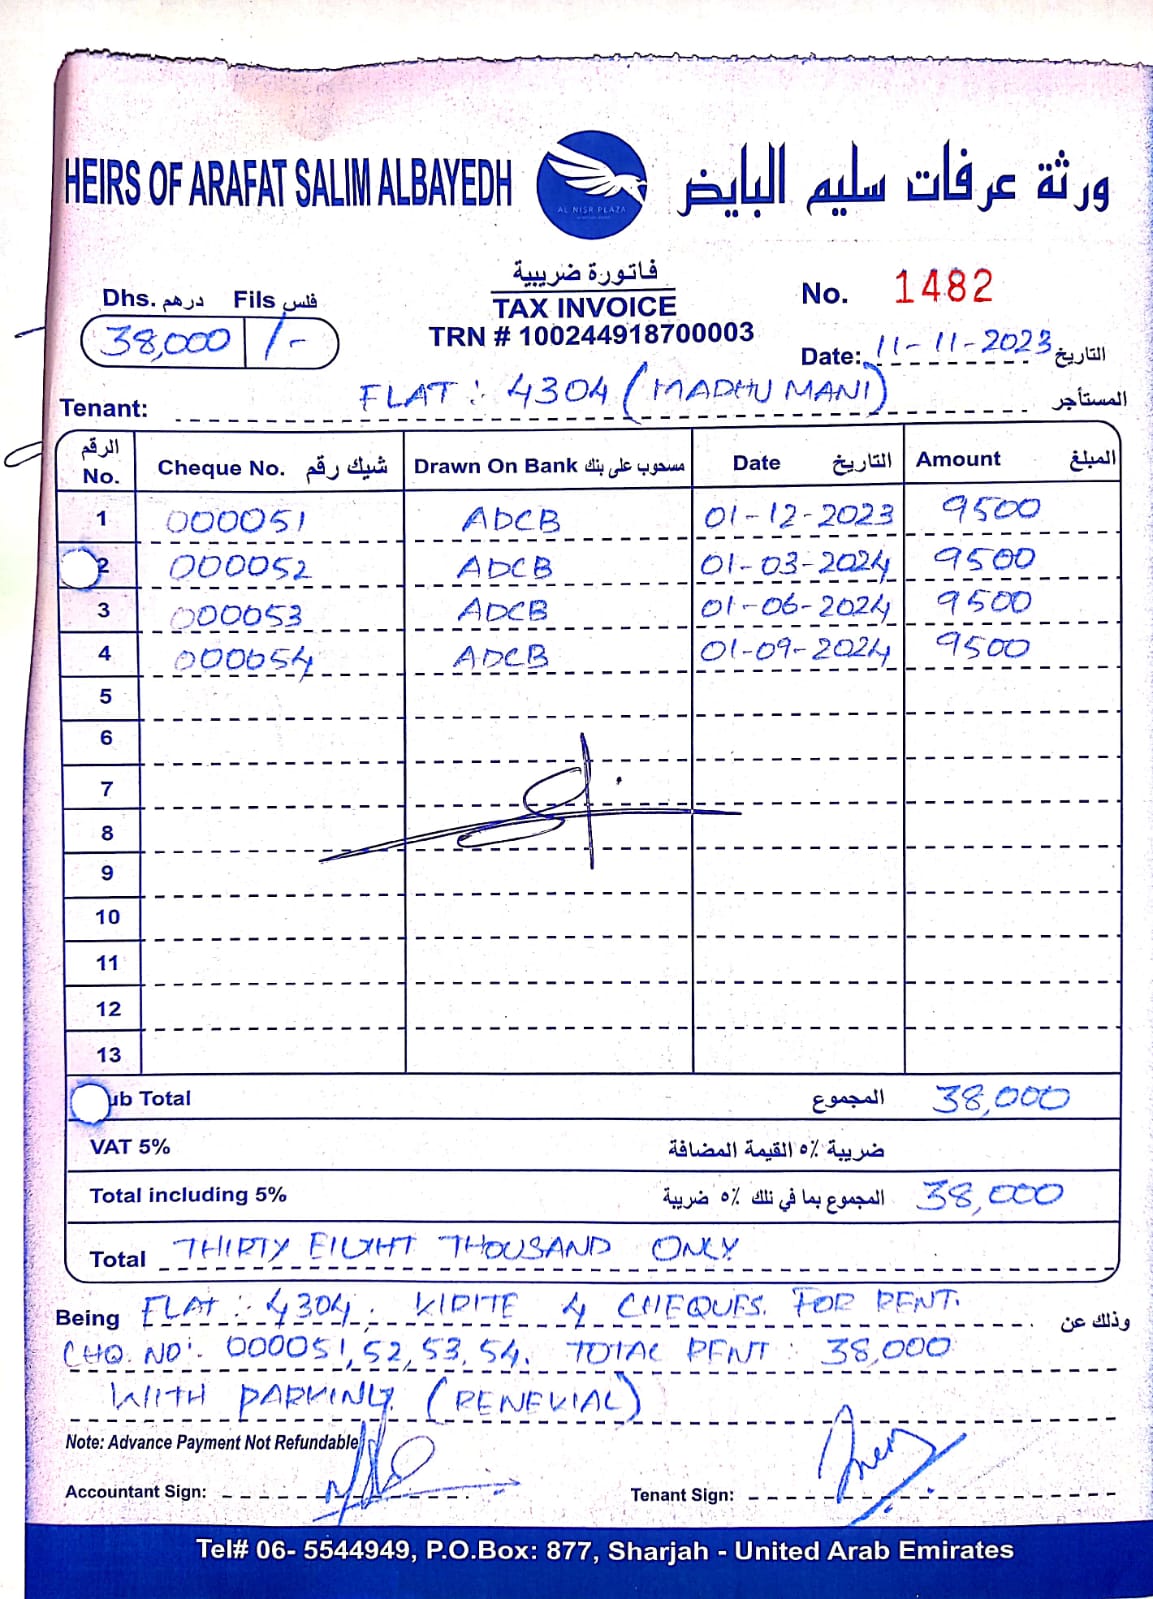 HEIRS OF ARAFAT SALIM ALBAYEDH
AL NISR PLAZA
ورثة عرفات سليم البايض
فاتورة ضريبية
TAX INVOICE
TRN # 100244918700003
Dhs. درهم Fils فلس
38,000 /-
No. 1482
Date: 11-11-2023 التاريخ
Tenant: FLAT: 4304 (MADHU MANI) المستأجر
الرقم No. Cheque No. شيك رقم Drawn On Bank مسحوب على بنك Date التاريخ Amount المبلغ
1 000051 ADCB 01-12-2023 9500
2 000052 ADCB 01-03-2024 9500
3 000053 ADCB 01-06-2024 9500
4 000054 ADCB 01-09-2024 9500
5
6
7
8
9
10
11
12
13
ub Total المجموع 38,000
VAT 5% ضريبة ٥٪ القيمة المضافة
Total including 5% المجموع بما في ذلك ٥٪ ضريبة 38,000
Total THIRTY EIGHT THOUSAND ONLY
Being FLAT: 4304, 4 CHEQUES. FOR RENT. وذلك عن
CHQ. NO: 000051, 52, 53, 54. TOTAL RENT: 38,000
WITH PARKING. (RENEWAL)
Note: Advance Payment Not Refundable
Accountant Sign:
Tenant Sign:
Tel# 06- 5544949, P.O.Box: 877, Sharjah - United Arab Emirates